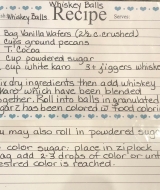 Whiskey Balls
Whiskey Balls Recipe Serves:
Bag Vanilla Wafers (2½ c. crushed)
Cups ground pecans
T. Cocoa
Cup powdered sugar
cup white karo 3 jiggers whiskey
ix dry ingredients then add whiskey
karo which have been blended
together. Roll into balls in granulated
sugar has been colored w/ food color
you may also roll in powdered sugar
color sugar: place in ziplock
bag add 2-3 drops of color or unt
desired color is reached.